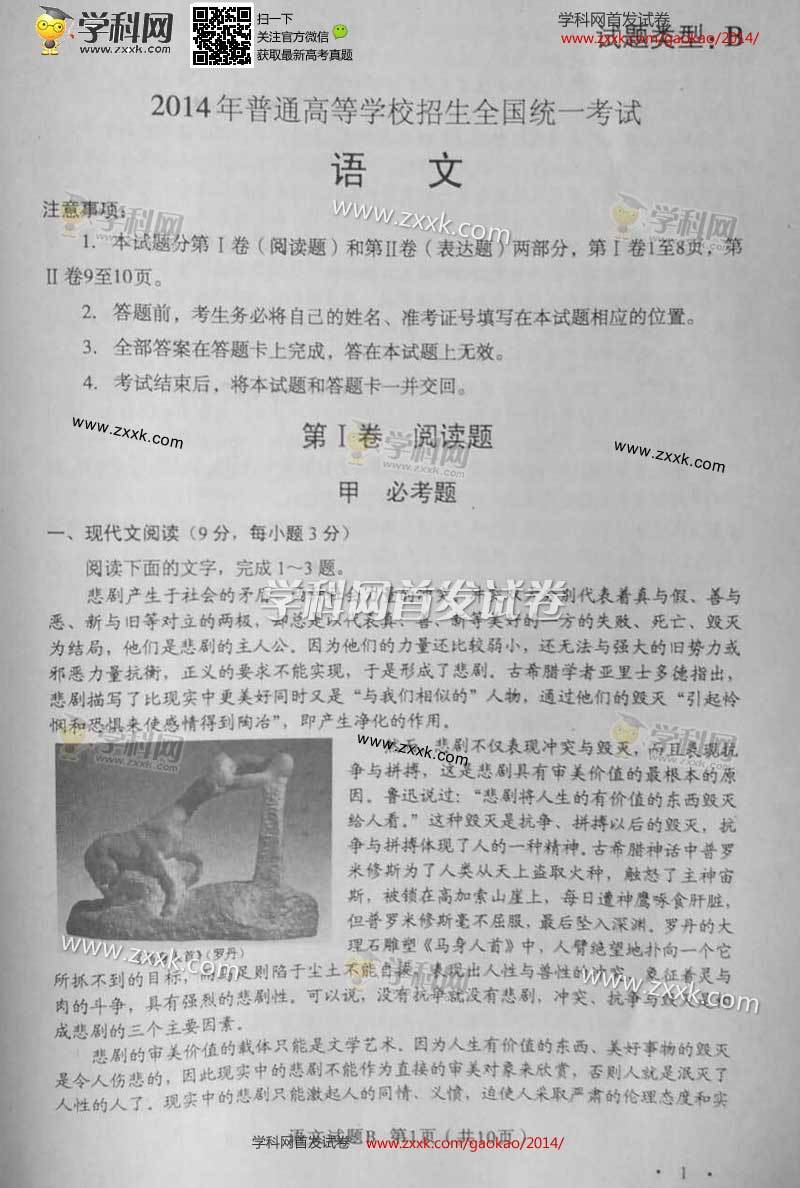 学科网
www.zxxk.com
扫一下
关注官方微信
获取最新高考真题
学科网首发试卷
www.zxxk.com/gaokao/2014/
试题类型：B
2014年普通高等学校招生全国统一考试
语 文
注意事项：
学科网
zxxk.com
www.zxxk.com
学科网
zxxk.com
1. 本试题分第Ⅰ卷（阅读题）和第Ⅱ卷（表达题）两部分，第Ⅰ卷1至8页，第
Ⅱ卷9至10页。
2. 答题前，考生务必将自己的姓名、准考证号填写在本试题相应的位置。
3. 全部答案在答题卡上完成，答在本试题上无效。
4. 考试结束后，将本试题和答题卡一并交回。
www.zxxk.com
第Ⅰ卷 阅读题
学科网
zxxk.com
www.zxxk.com
甲 必考题
一、现代文阅读（9分，每小题3分）
阅读下面的文字，完成1～3题。
学科网首发试卷
悲剧产生于社会的矛盾、两种社会力量的冲突。冲突双方分别代表着真与假、善与
恶、新与旧等对立的两极，却总是以代表真、善、新等美好的一方的失败、死亡、毁灭
为结局，他们是悲剧的主人公。因为他们的力量还比较弱小，还无法与强大的旧势力或
邪恶力量抗衡，正义的要求不能实现，于是形成了悲剧。古希腊学者亚里士多德指出，
悲剧描写了比现实中更美好同时又是“与我们相似的”人物，通过他们的毁灭“引起怜
悯和恐惧来使感情得到陶冶”，即产生净化的作用。
学科网
zxxk.com
www.zxxk.com
学科网
zxxk.com
然而，悲剧不仅表现冲突与毁灭，而且表现抗
争与拼搏，这是悲剧具有审美价值的最根本的原
因。鲁迅说过：“悲剧将人生的有价值的东西毁灭
给人看。”这种毁灭是抗争、拼搏以后的毁灭，抗
争与拼搏体现了人的一种精神。古希腊神话中普罗
米修斯为了人类从天上盗取火种，触怒了主神宙
斯，被锁在高加索山崖上，每日遭神鹰啄食肝脏，
但普罗米修斯毫不屈服，最后坠入深渊。罗丹的大
理石雕塑《马身人首》中，人臂绝望地扑向一个它
首》（罗丹）
www.zxxk.com
www.zxxk.com
所抓不到的目标，而马足则陷于尘土不能自拔，表现出人性与兽性的冲突，象征着灵与
肉的斗争，具有强烈的悲剧性。可以说，没有抗争就没有悲剧，冲突、抗争与毁灭是构
成悲剧的三个主要因素。
悲剧的审美价值的载体只能是文学艺术。因为人生有价值的东西、美好事物的毁灭
是令人伤悲的，因此现实中的悲剧不能作为直接的审美对象来欣赏，否则人就是泯灭了
人性的人了。现实中的悲剧只能激起人的同情、义愤，迫使人采取严肃的伦理态度和实
语文试题B 第1页（共10页）
学科网首发试卷
www.zxxk.com/gaokao/2014/
· 1 ·